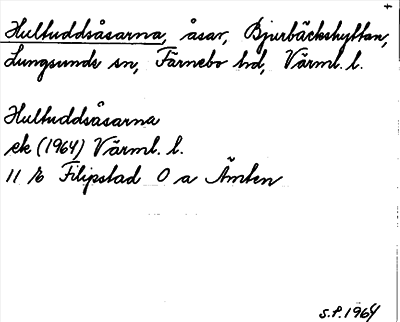 Hultuddsåsarna, åsar, Bjurbäckshyttan,
Lungsunds sn, Färnebo hd, Värml. l.
Hultuddsåsarna
ek (1964) Värml. l.
11 Filipstad O a Ämten
S.P. 1964